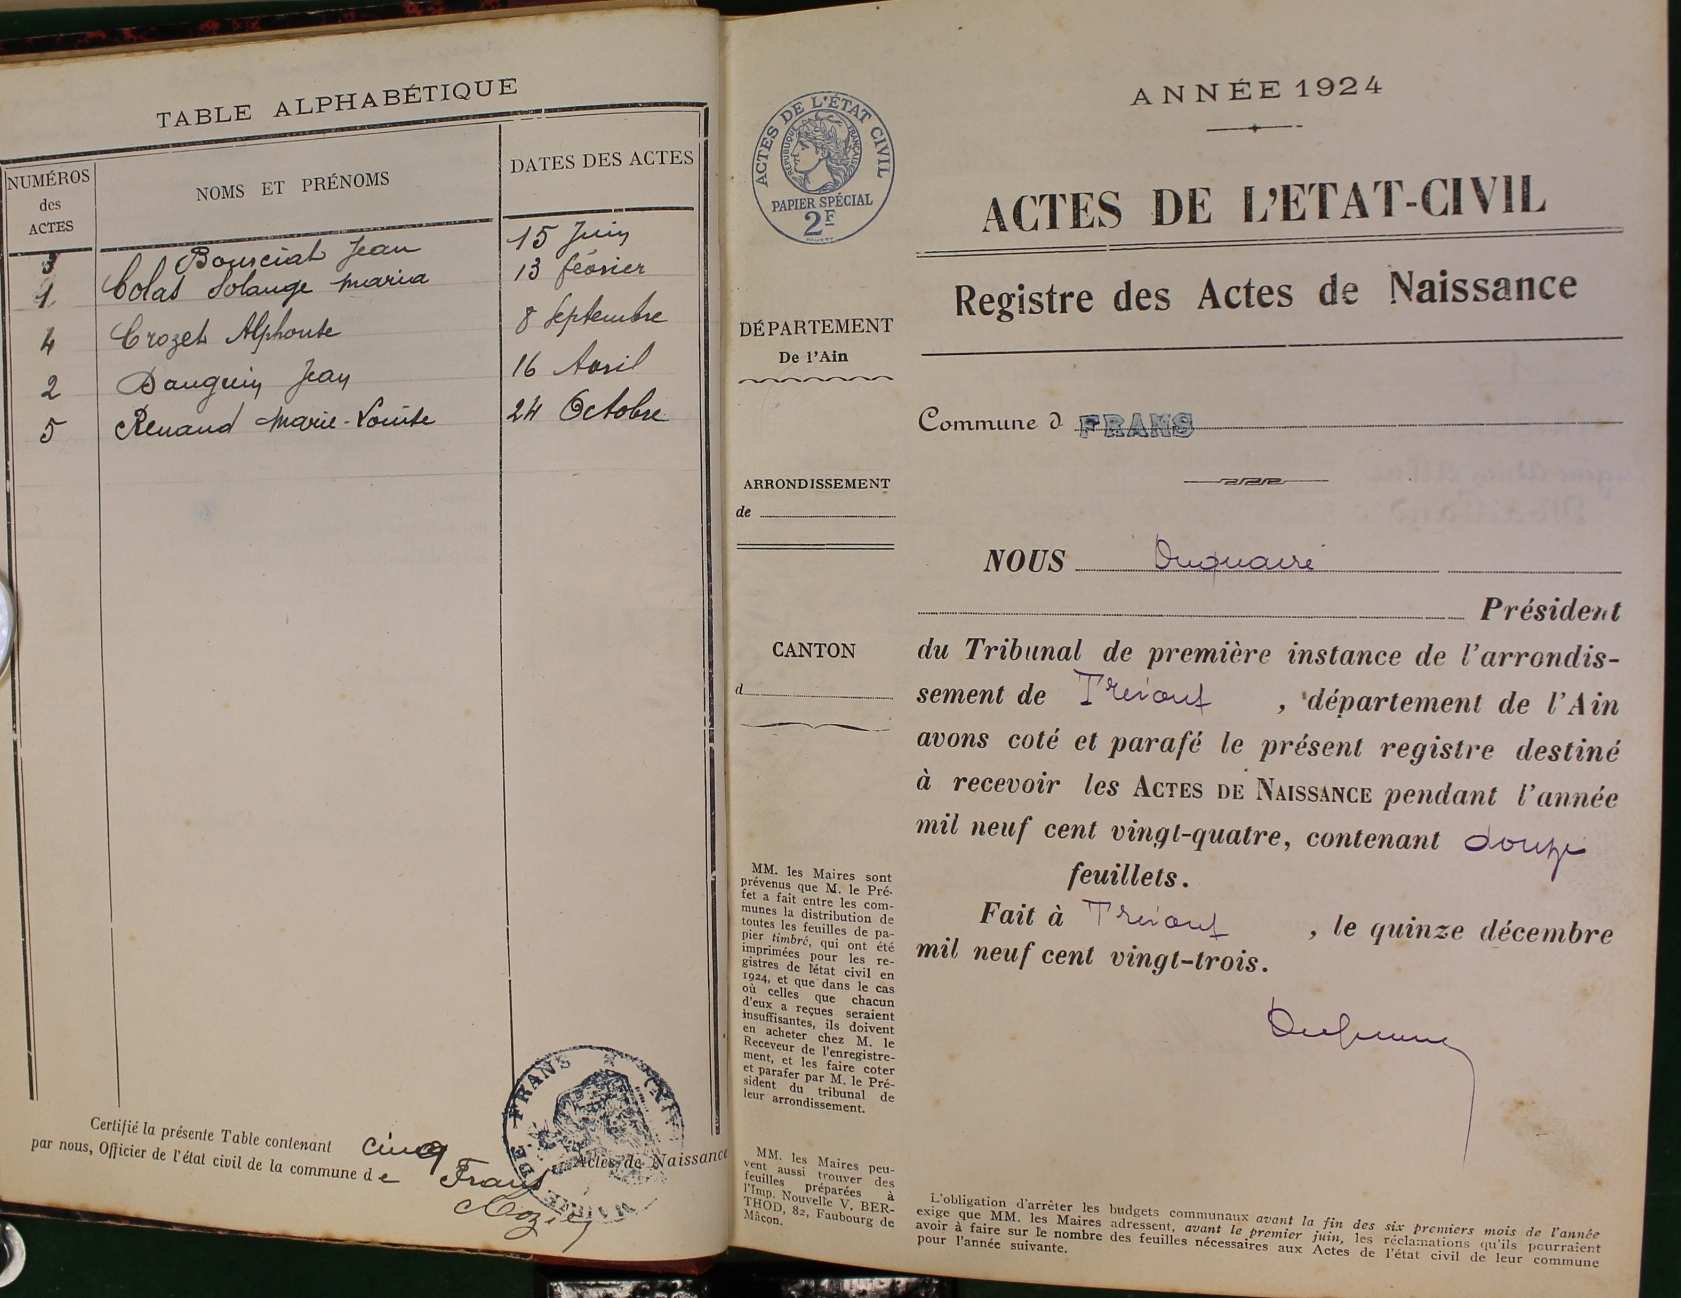 TABLE ALPHABÉTIQUE
NUMÉROS
des
ACTES
NOMS ET PRÉNOMS
DATES DES ACTES
3 Bourciat Jean 15 Juin
1 Colas Solange Maria 13 février
4 Crozet Alphonse 8 Septembre
2 Dauguin Jean 16 Avril
5 Renaud Marie-Louise 24 Octobre
Certifié la présente Table contenant cinq Actes de Naissance
par nous, Officier de l'état civil de la commune de Frans
DE FRANS
ACTES DE L'ÉTAT CIVIL
RÉPUBLIQUE FRANÇAISE
PAPIER SPÉCIAL
2F
DÉPARTEMENT
De l'Ain
ARRONDISSEMENT
de
CANTON
d
MM. les Maires sont
prévenus que M. le Pré-
fet a fait entre les com-
munes la distribution de
toutes les feuilles de pa-
pier timbré, qui ont été
imprimées pour les re-
gistres de l'état civil en
1924, et que dans le cas
où celles que chacun
d'eux a reçues seraient
insuffisantes, ils doivent
en acheter chez M. le
Receveur de l'enregistre-
ment, et les faire coter
et parafer par M. le Pré-
sident du tribunal de
leur arrondissement.
MM. les Maires peu-
vent aussi trouver des
feuilles préparées à
l'Imp. Nouvelle V. BER-
THOD, 82, Faubourg de
Mâcon.
ANNÉE 1924
ACTES DE L'ETAT-CIVIL
Registre des Actes de Naissance
Commune d FRANS
NOUS Duquaire
Président
du Tribunal de première instance de l'arrondis-
sement de Trévoux , département de l'Ain
avons coté et parafé le présent registre destiné
à recevoir les ACTES DE NAISSANCE pendant l'année
mil neuf cent vingt-quatre, contenant douze
feuillets.
Fait à Trévoux , le quinze décembre
mil neuf cent vingt-trois.
L'obligation d'arrêter les budgets communaux avant la fin des six premiers mois de l'année
exige que MM. les Maires adressent, avant le premier juin, les réclamations qu'ils pourraient
avoir à faire sur le nombre des feuilles nécessaires aux Actes de l'état civil de leur commune
pour l'année suivante.